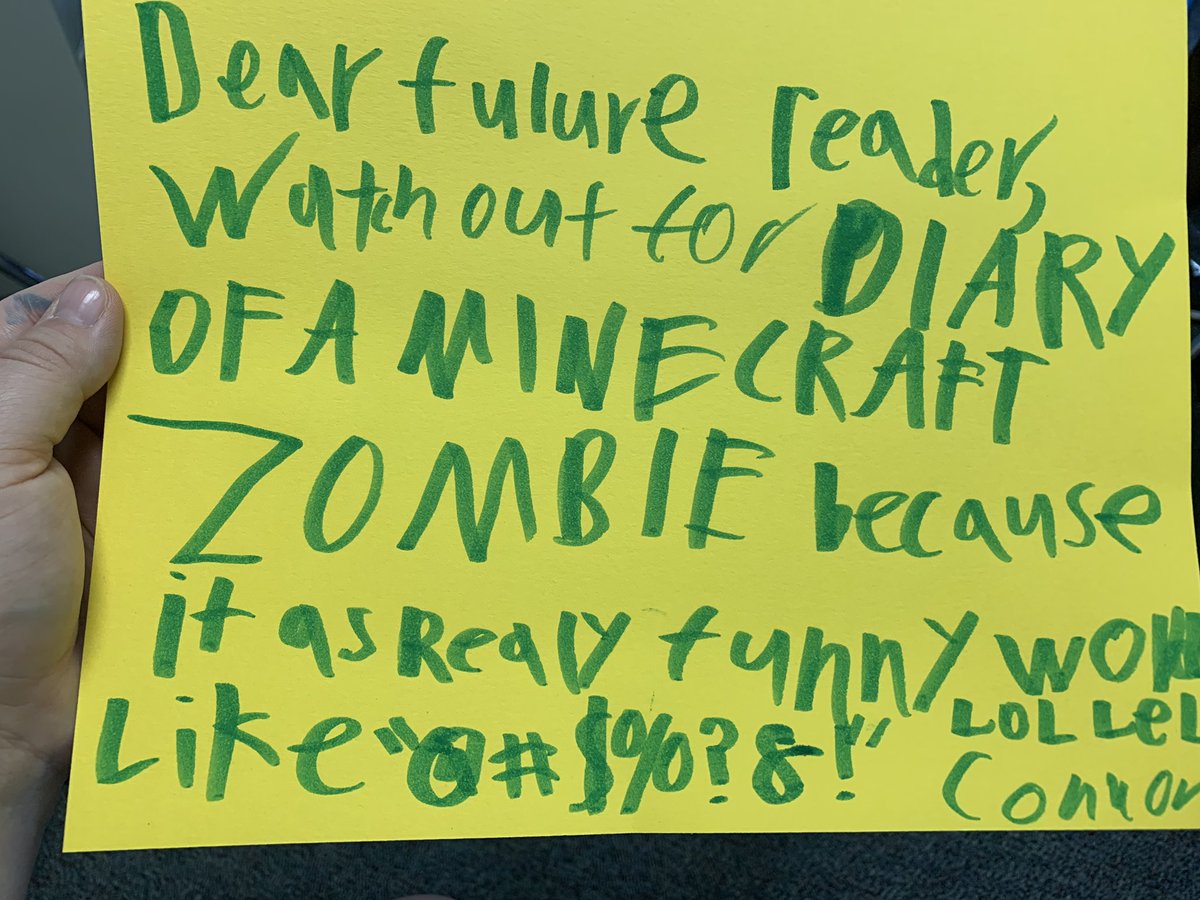 Dear fulure reader,
Watch out for DIARY
OF A MINECRAFT
ZOMBIE because
it as Realy funny
Like "@#$%?&!" LOL LeL